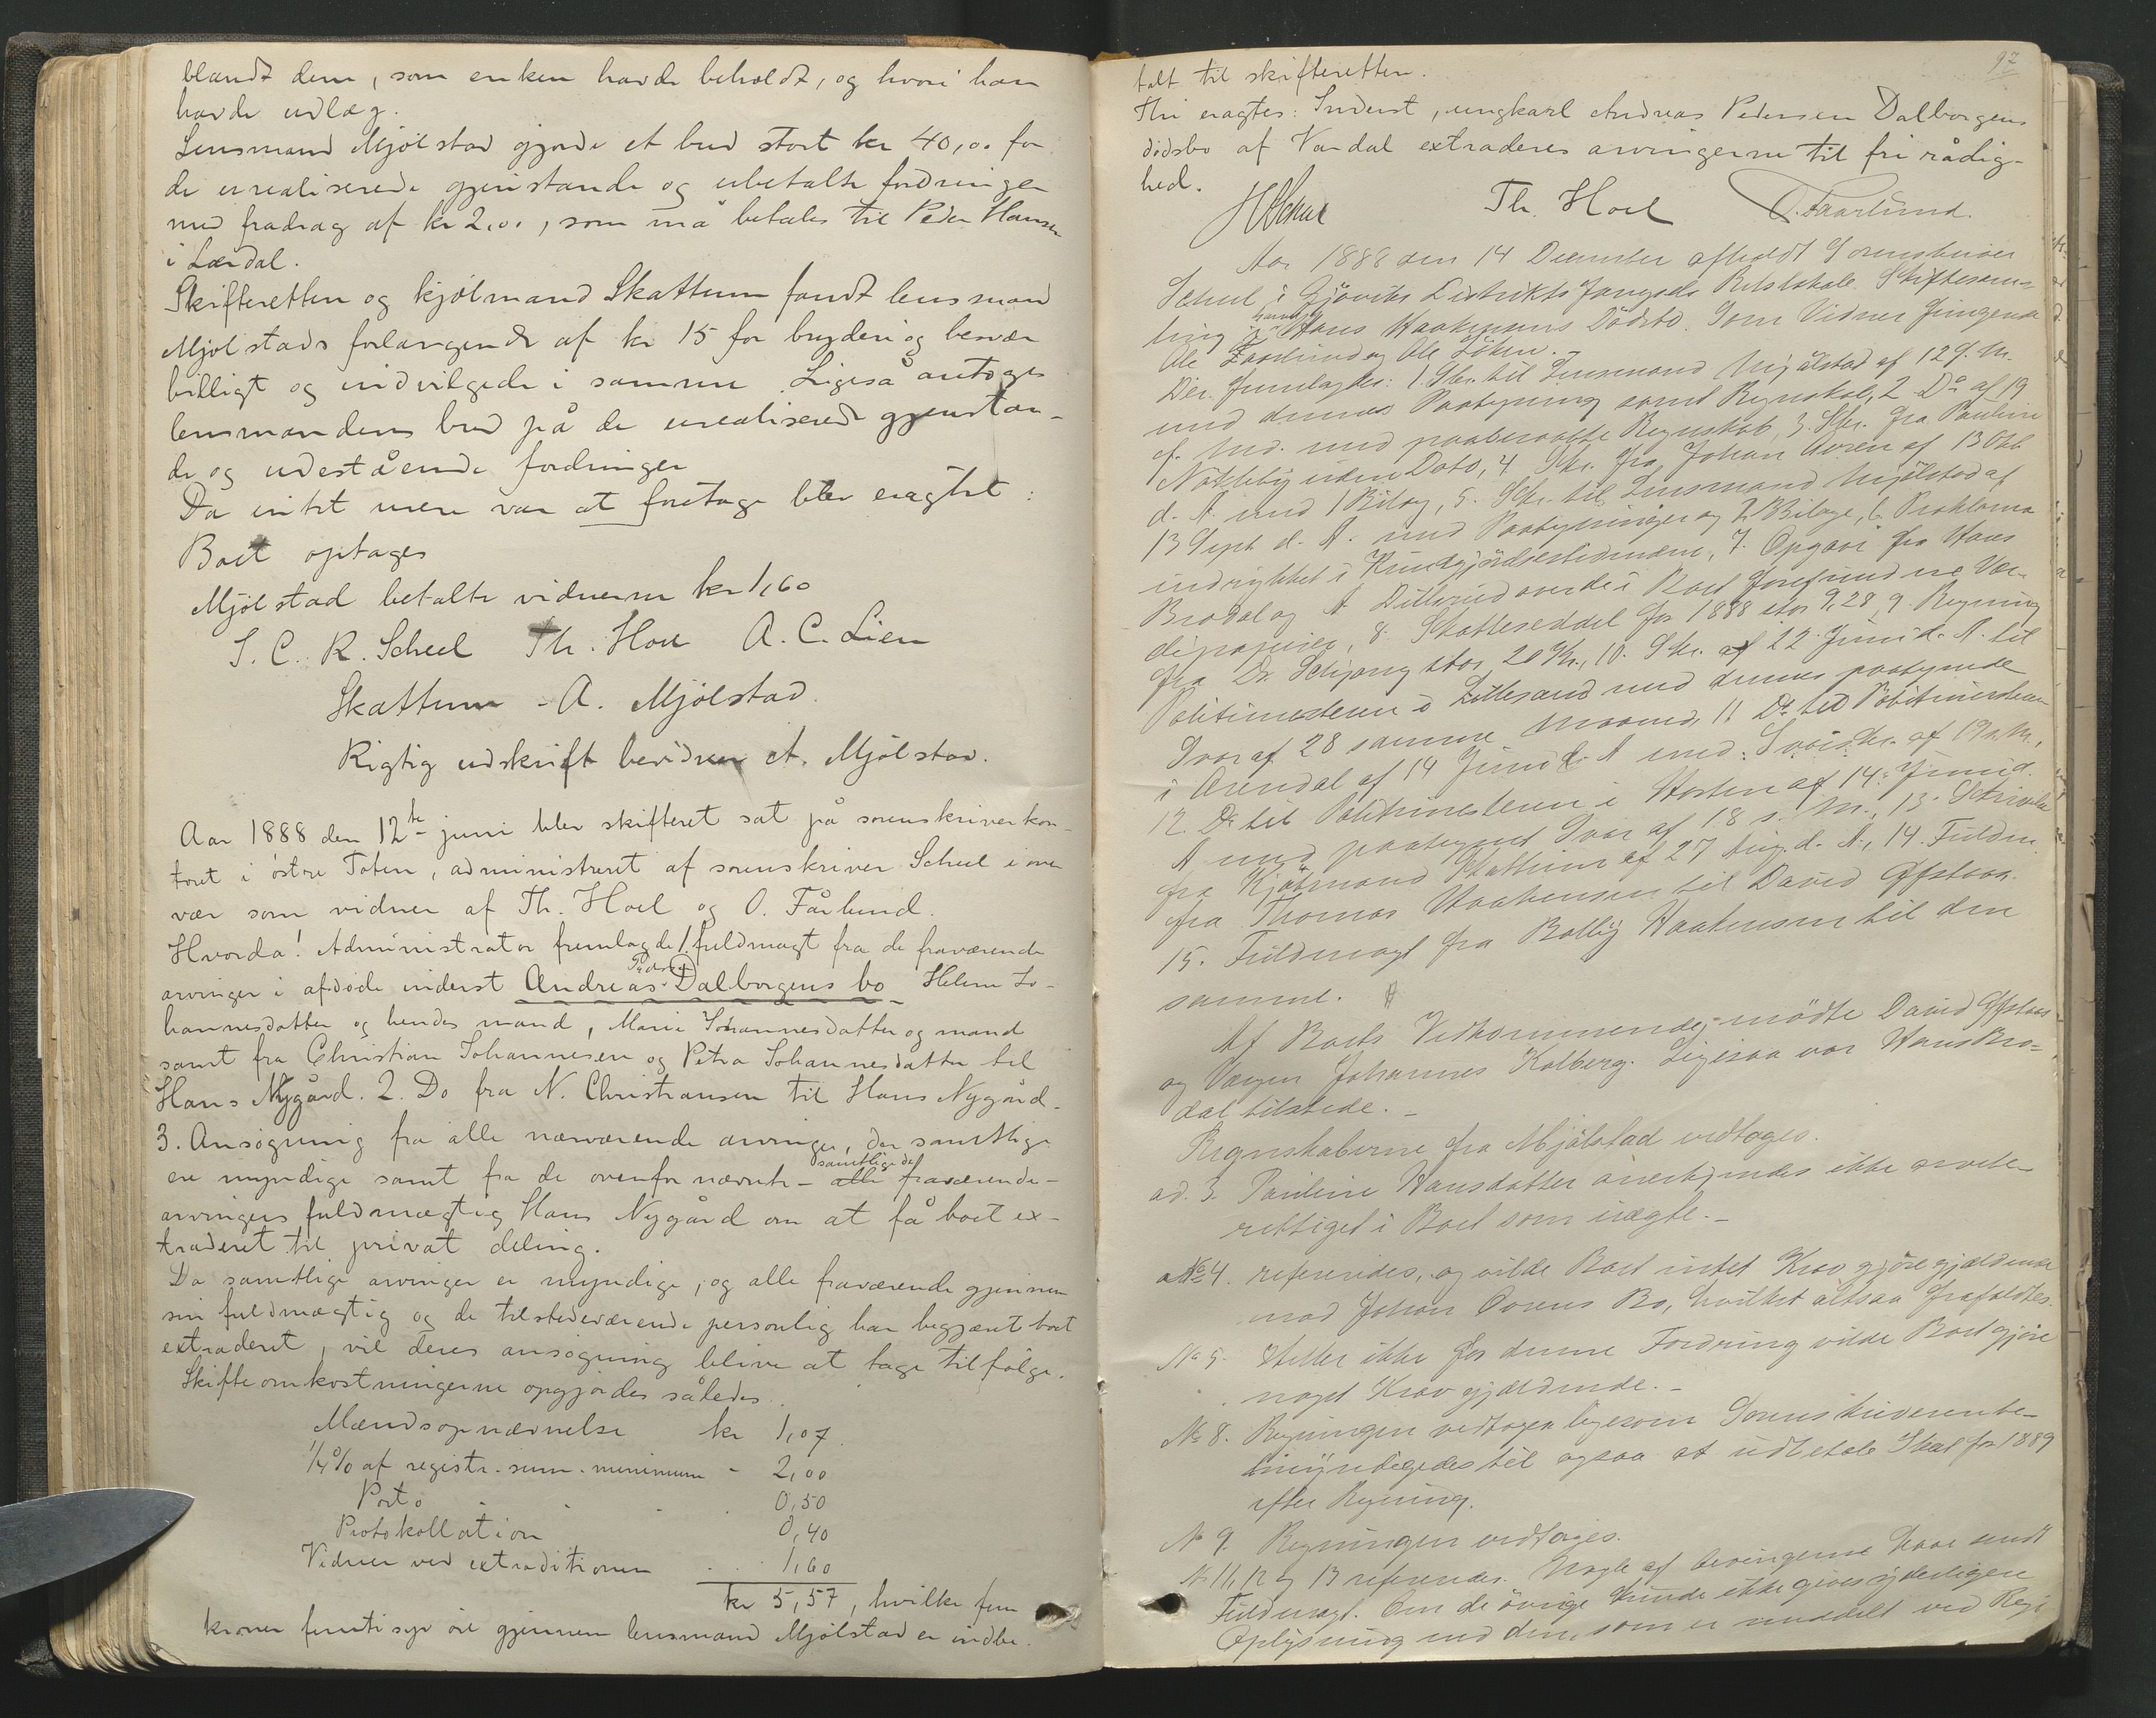 blandt dem, som enken havde beholdt, og hvori han
havde udlæg.
Lensmand Mjølstad gjorde et bud stort kr 40,00 for
de urealiserede gjenstande og ubetalte fordringer
med fradrag af kr 2,00, som må betales til Peder Hansen
i Lærdal.
Skifteretten og kjølmand Skattum fandt lensmand
Mjølstads forlangende af kr 15 for bryderi og besvær
billigt og indvilgede i samme. Ligeså antoges
lensmandens bud på de urealiserede gjenstan-
de og udestående fordringer
Da intet mere var at foretage blev eragtet:
Boet optages
Mjølstad betalte vidnerne kr 1,60
S. C. R. Scheel Th. Hoel A. C. Lien
Skattum - A. Mjølstad.
Rigtig udskrift bevidner A. Mjölstad.
Aar 1888 den 12te juni blev skifteret sat på sorenskriverkon-
toret i østre Toten, administreret af sorenskriver Scheel i over
vær som vidner af Th. Hoel og O. Fårlund.
Hvorda! Administrator fremlagde 1. fuldmagt fra de fraværende
arvinger i afdøde inderst Andreas Pedersen Dalborgens bo Helene Jo-
hannesdatter og hendes mand, Maria Johannesdatter og mand
samt fra Christian Johannesen og Petra Johannesdatter til
Hans Nygård. 2. Do fra N. Christiansen til Hans Nygård.
3. Ansøgning fra alle nærværende arvinger, der samtlige
ere myndige samt fra de ovenfor nævnte - alle samtlige de fraværende -
arvingers fuldmægtig Hans Nygård om at få boet ex-
traderet til privat deling.
Da samtlige arvinger er myndige, og alle fraværende gjennem
sin fuldmægtig og de tilstedeværende personlig har begjæret boet
extraderet, vil deres ansøgning blive at tage tilfølge.
Skifteomkostningerne opgjordes således..
Mændsopnævnelse kr 1,07.
1/4 % af registr. sum. minimum - 2,00
Porto 0,50
Protokollation 0,40
Vidner ved extraditionen 1,60
kr 5,57, hvilke fem
kroner femti syv øre gjennem lensmand Mjølstad er indbe-
92
talt til skifteretten.
Thi eragtes: Inderst, ungkarl Andreas Pedersen Dalborgens
dødsbo af Vardal extraderes arvingerne til fri rådig-
hed.
Th. Hoel O. Faarlund.
Aar 1888 den 14 December afholdt Sorenskriver
Scheel i Gjøviks Distrikts Fængsels Retslokale Skiftesam-
ling i Hans Haakensens Dödsbo. Som Vidner fungerede
Ole Faarlund og Ole Löken. -
Der fremlagdes: 1. Skr. til Lensmand Mjølstad af 12 f. M.
med dennes Paategning samt Regnskab, 2. Do af 19
f. Md. med paaberaabte Regnskab, 3. Skr. fra Pauline
Nökleby uden Dato, 4. Skr. fra Johan Ovren af 13 Okt
d. A. med 1 Bilag, 5. Skr. til Lensmand Mjölstad af
13 Sept d. A. med Paategninger og 2 Bilage, 6. Proklama
indrykket i Kundgjörelsestidende, 7. Opgave fra Hans
Brodal og A Dillerud over de i Boet forefundne Vær-
dipapirer, 8. Skatteseddel for 1888 stor 9,28, 9. Regning
fra Dr. Schjöng stor 20 Kr., 10. Skr. af 22 Juni d. A. til
Politimesteren i Lillesand med dennes paategnede
Svar af 28 samme Maaned, 11 Do til Politimesteren
i Arendal af 14 Juni d. A med Svarskr. af 19 s. M.,
12. Do til Politimesteren i Horten af 14. Juni d.
A med paategnet Svar af 18 s. M., 13. Skrivelse
fra Kjølmand Skattum af 27 Aug. d. A., 14. Fuldm.
fra Thomas Haakensen til David Gfstaas.
15. Fuldmagt fra Bollij Haakensen til den
samme.
Af Boets Vedkommende mödte David Gfstaas
og Værgen Johannes Kolberg. Ligesaa var Hans Bro-
dal tilstede. -
Regnskaberne fra Mjölstad vedtoges.
ad. 3. Pauline Hansdatter anerkjendes ikke arvebe-
rettiget i Boet som uægte. -
ad No 4. refereredes, og vilde Boet intet Krav gjöre gjældende
mod Johan Ovrens Bo, hvilket altsaa frafaldtes.
No 5. Heller ikke for denne Fordring vilde Boet gjöre
noget Krav gjældende. -
No 8. Regningen vedtages ligesom Sorenskriveren be-
myndigedes til ogsaa at udbetale Skat for 1889
efter Regning.
No 9. Regningen vedtoges.
No 11, 12 og 13 refereredes. Nogle af Arvingerne have sendt
Fuldmagt. Om de övrige kunde ikke gives yderligere
Oplysning end den, som er meddelt ved Regi